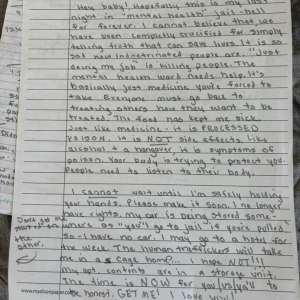 Hey baby! Hopefully this is my last
night in "mental health" jail-hell
for forever. I cannot believe that we
have been completly crucified for simply
telling truth that can save lives. It is so
sad how indoctrinated people are. "Just
doing my job" is killing people. The
mental health word needs help. It's
basically just medicine you're forced to
take. Everyone must go back to
treating others how they want to be
treated. The food has kept me sick.
Just like medicine - it is PROCESSED
POISON. It is NOT side effects, like
alcohol + a hangover, it is symptoms of
poison. Your body is trying to protect you.
People need to listen to their body.
I cannot wait until I'm safely holding
your hands. Please make it soon. I no longer
have rights, my car is being stored some-
where as "you'll go to jail if you're pulled"
so I have no car. I may go to a hotel for
the week. The human traffickers will take
me in a cage home... I hope NOT!!!
my apt. contents are in a storage unit.
The time is NOW for you/us/ya'll to
be honest. GET ME! I love you!
on
the
other.
www.madisonpaper.com